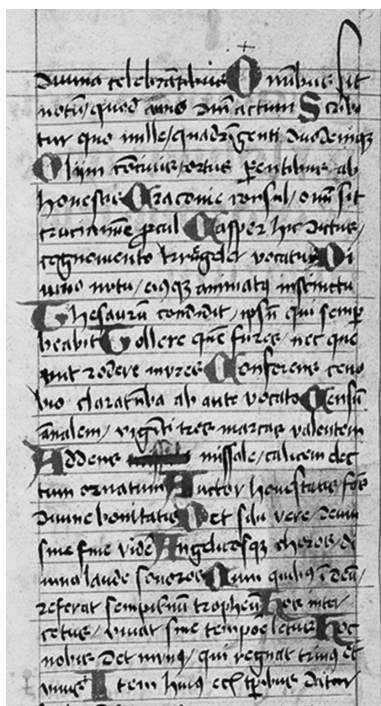 diuina celebrantibus Omnibus sit
notu quod annis dm actum Scribi
tur quo mille quadringenti duodecimq
Olim conciuis ortus parentibus ab
honestis Cracouie consul om sit
procul Casper hic dictus
cognomento vocatus Di
uino notu eiusq animatq instinctu
Thesauru condidit ipsu qui semp
beabit Tollere que fures nec que
unt rodere mures Conferens ceno
bio claratuba ab ante vocato Censu
annalem viginti tres marcas valentem
Addens missale calicem dec
tum ornatum Auctor honestatis fons
diuine bonitatis Det sibi vere deum
sine fine vide Angelicosq choros di
uina laude sonoros Cum quibus
referat sempiternu tropheu Hos inter
cetus viuat sine tempore letus Hoc
nobis det munq qui regnat trinus et
vnus Item huiq datur